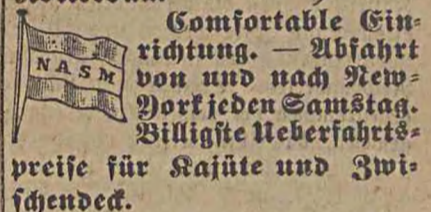 Comfortable Ein=
richtung. — Abfahrt
von und nach New=
York jeden Samstag.
Billigste Ueberfahrts=
preise für Kajüte und Zwi=
schendeck.
NASM